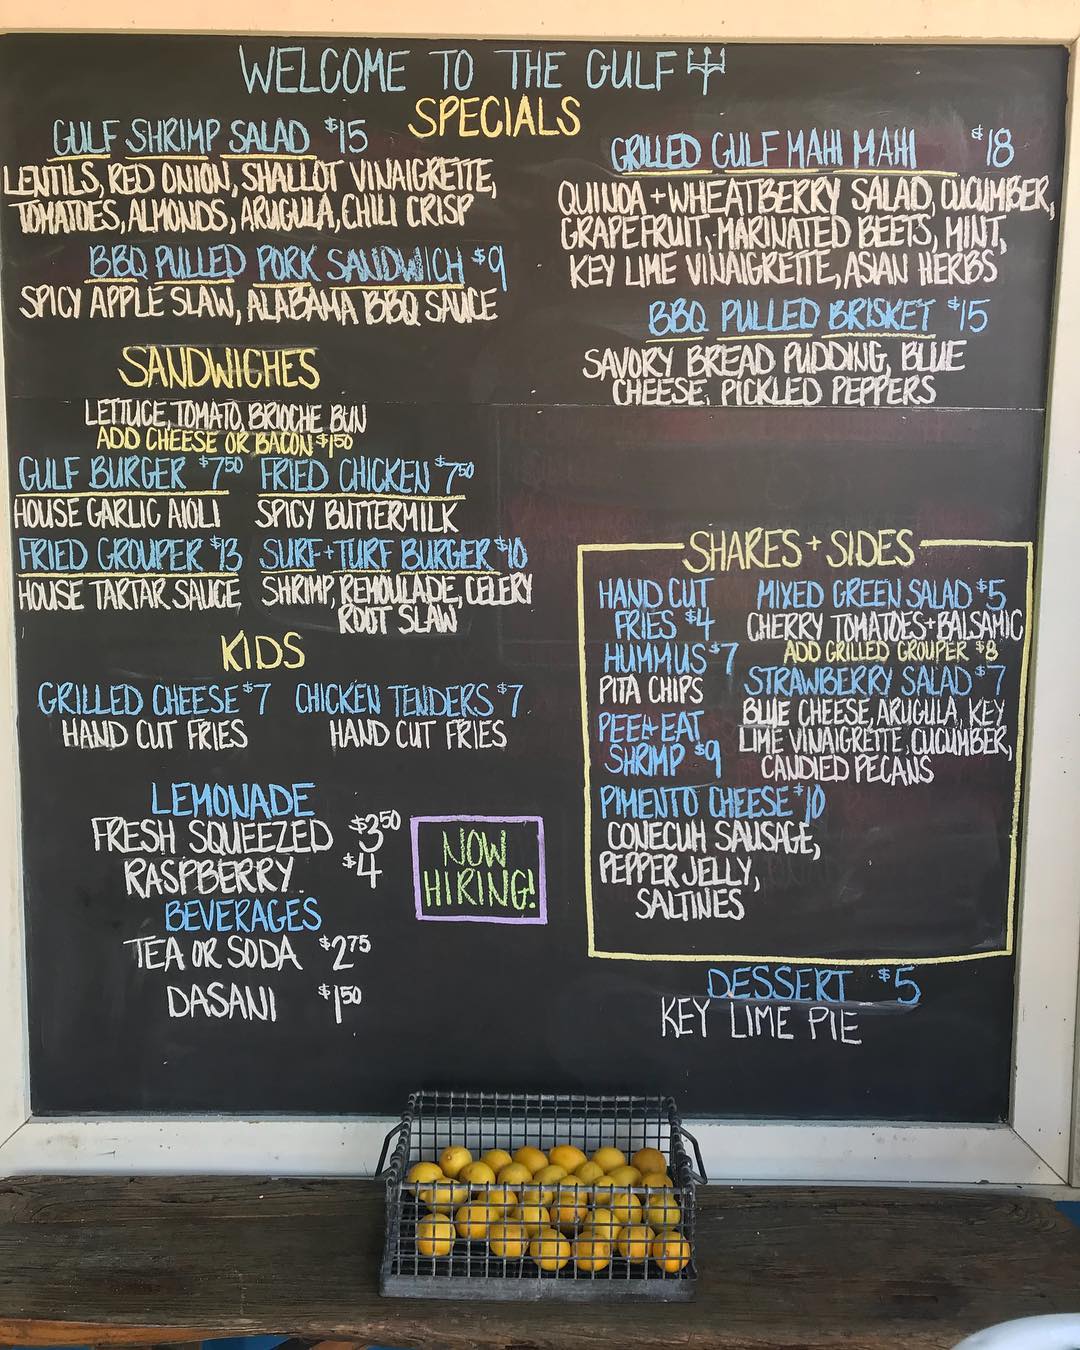 WELCOME TO THE GULF
SPECIALS
GULF SHRIMP SALAD $15
LENTILS, RED ONION, SHALLOT VINAIGRETTE,
TOMATOES, ALMONDS, ARUGULA, CHILI CRISP
BBQ PULLED PORK SANDWICH $9
SPICY APPLE SLAW, ALABAMA BBQ SAUCE
GRILLED GULF MAHI MAHI $18
QUINOA + WHEATBERRY SALAD, CUCUMBER,
GRAPEFRUIT, MARINATED BEETS, MINT,
KEY LIME VINAIGRETTE, ASIAN HERBS
BBQ PULLED BRISKET $15
SAVORY BREAD PUDDING, BLUE
CHEESE, PICKLED PEPPERS
SANDWICHES
LETTUCE, TOMATO, BRIOCHE BUN
ADD CHEESE OR BACON $1.50
GULF BURGER $7.50
HOUSE GARLIC AIOLI
FRIED CHICKEN $7.50
SPICY BUTTERMILK
FRIED GROUPER $13
HOUSE TARTAR SAUCE
SURF + TURF BURGER $10
SHRIMP, REMOULADE, CELERY
ROOT SLAW
KIDS
GRILLED CHEESE $7
HAND CUT FRIES
CHICKEN TENDERS $7
HAND CUT FRIES
LEMONADE
FRESH SQUEEZED $3.50
RASPBERRY $4
BEVERAGES
TEA OR SODA $2.75
DASANI $1.50
NOW
HIRING!
SHARES + SIDES
HAND CUT
FRIES $4
HUMMUS $7
PITA CHIPS
PEEL + EAT
SHRIMP $9
PIMENTO CHEESE $10
CONECUH SAUSAGE,
PEPPER JELLY,
SALTINES
MIXED GREEN SALAD $5
CHERRY TOMATOES + BALSAMIC
ADD GRILLED GROUPER $8
STRAWBERRY SALAD $7
BLUE CHEESE, ARUGULA, KEY
LIME VINAIGRETTE, CUCUMBER,
CANDIED PECANS
DESSERT $5
KEY LIME PIE